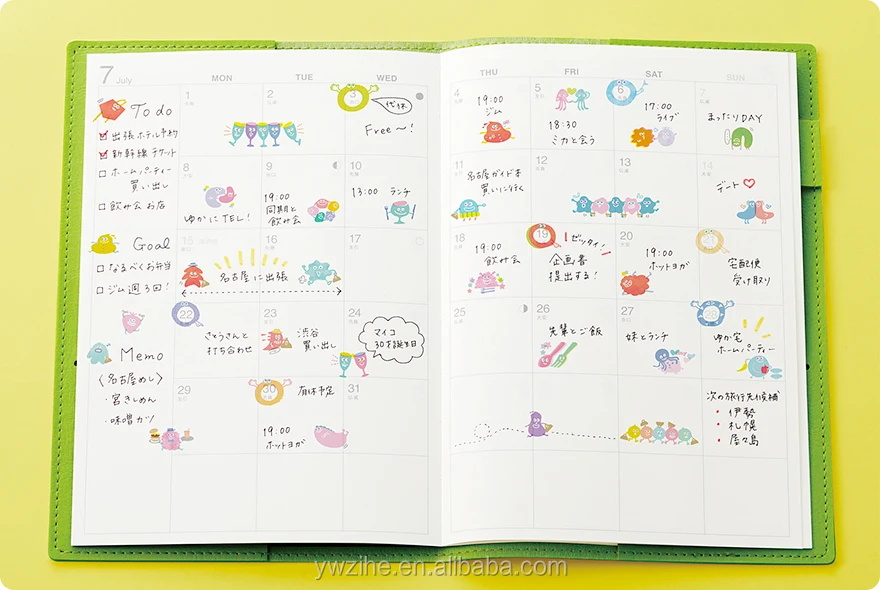 7 July
MON TUE WED
THU FRI SAT SUN
To do
出張ホテル予約
新幹線チケット
ホームパーティー
買い出し
飲み会お店
Goal
なるべくお弁当
ジム週3回!
Memo
〈名古屋めし〉
・宮きしめん
・味噌カツ
1
2
3
代休
Free〜!
8
ゆかにTEL!
9
19:00
同期と
飲み会
10
13:00 ランチ
15
16
17
名古屋に出張
22
さとうさんと
打ち合わせ
23
渋谷
買い出し
24
マイコ
30才誕生日
29
30
有休予定
19:00
ホットヨガ
31
4
19:00
ジム
5
18:30
ミカと会う
6
17:00
ライブ
7
まったりDAY
11
名古屋ガイド本
買いに行く
12
13
14
デート
18
19:00
飲み会
19
ゼッタイ!
企画書
提出する!
20
19:00
ホットヨガ
21
宅配便
受け取り
25
26
先輩とご飯
27
妹とランチ
28
ゆか宅
ホームパーティー
次の旅行先候補
・伊勢
・札幌
・屋久島
ywzihe.en.alibaba.com